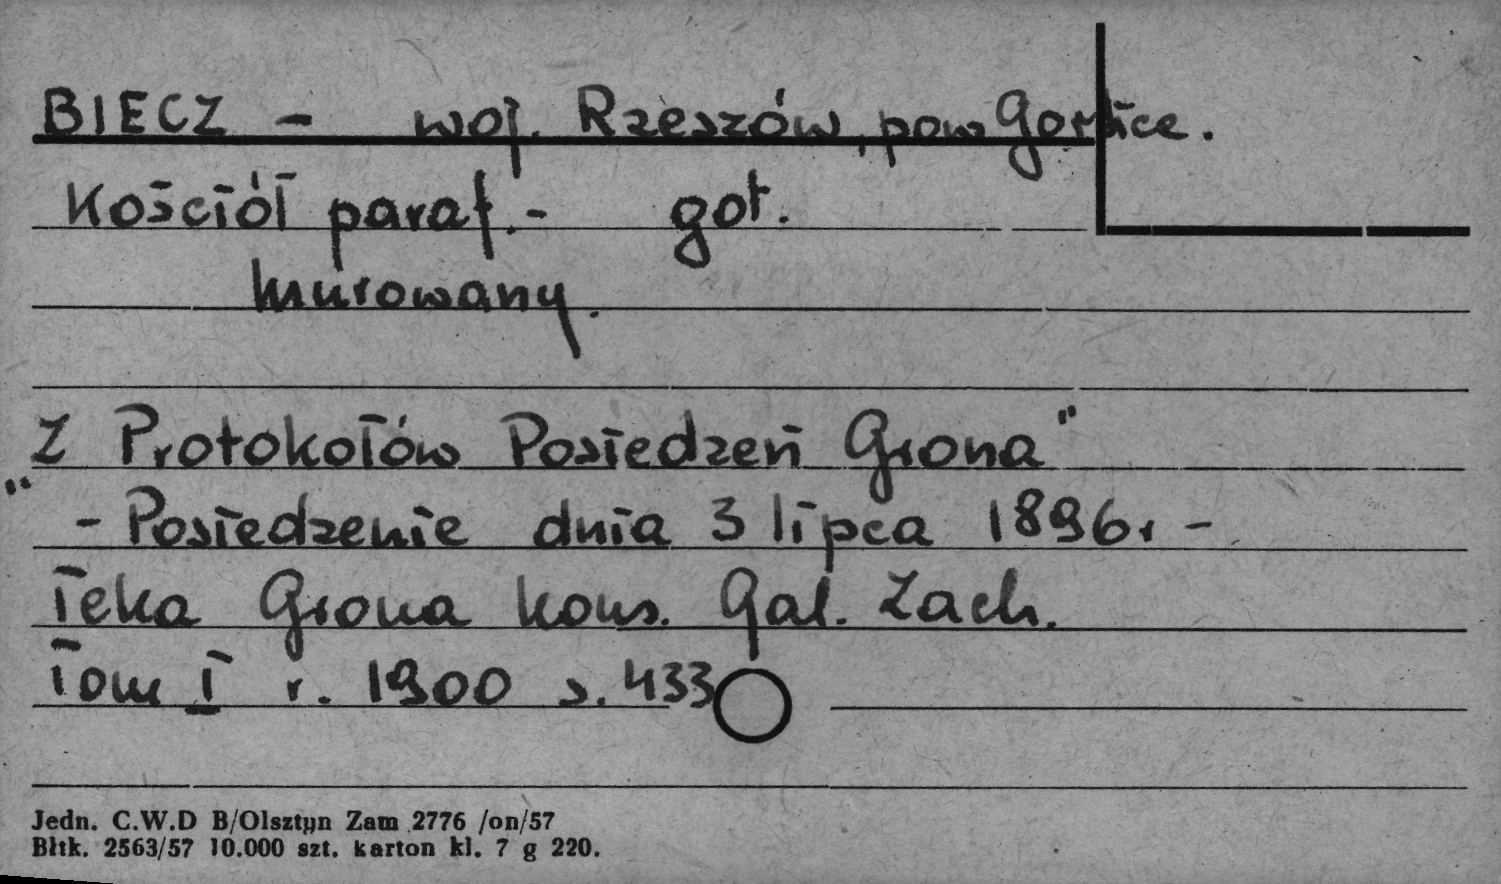 BIECZ - woj. Rzeszów, pow Gorlice.
Kościół paraf. - got.
murowany.
„Z Protokołów Posiedzeń Grona"
- Posiedzenie dnia 3 lipca 1896r -
Teka Grona kons. Gal. Zach.
Tom I r. 1900 s. 433
Jedn. C.W.D B/Olsztyn Zam 2776 /on/57
Błtk. 2563/57 10.000 szt. karton kl. 7 g 220.